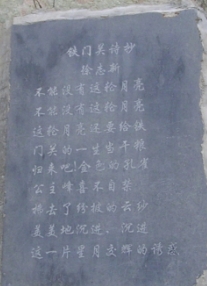 铁门关诗抄
徐志斯
不能没有这轮月亮
不能没有这轮月亮
这轮月亮还要给铁
门关的一生当干粮
归来吧!金色的孔雀
公主峰喜不自禁
褪去了纷披的云纱
美美地沉进、沉进
这一片星月交辉的诱惑